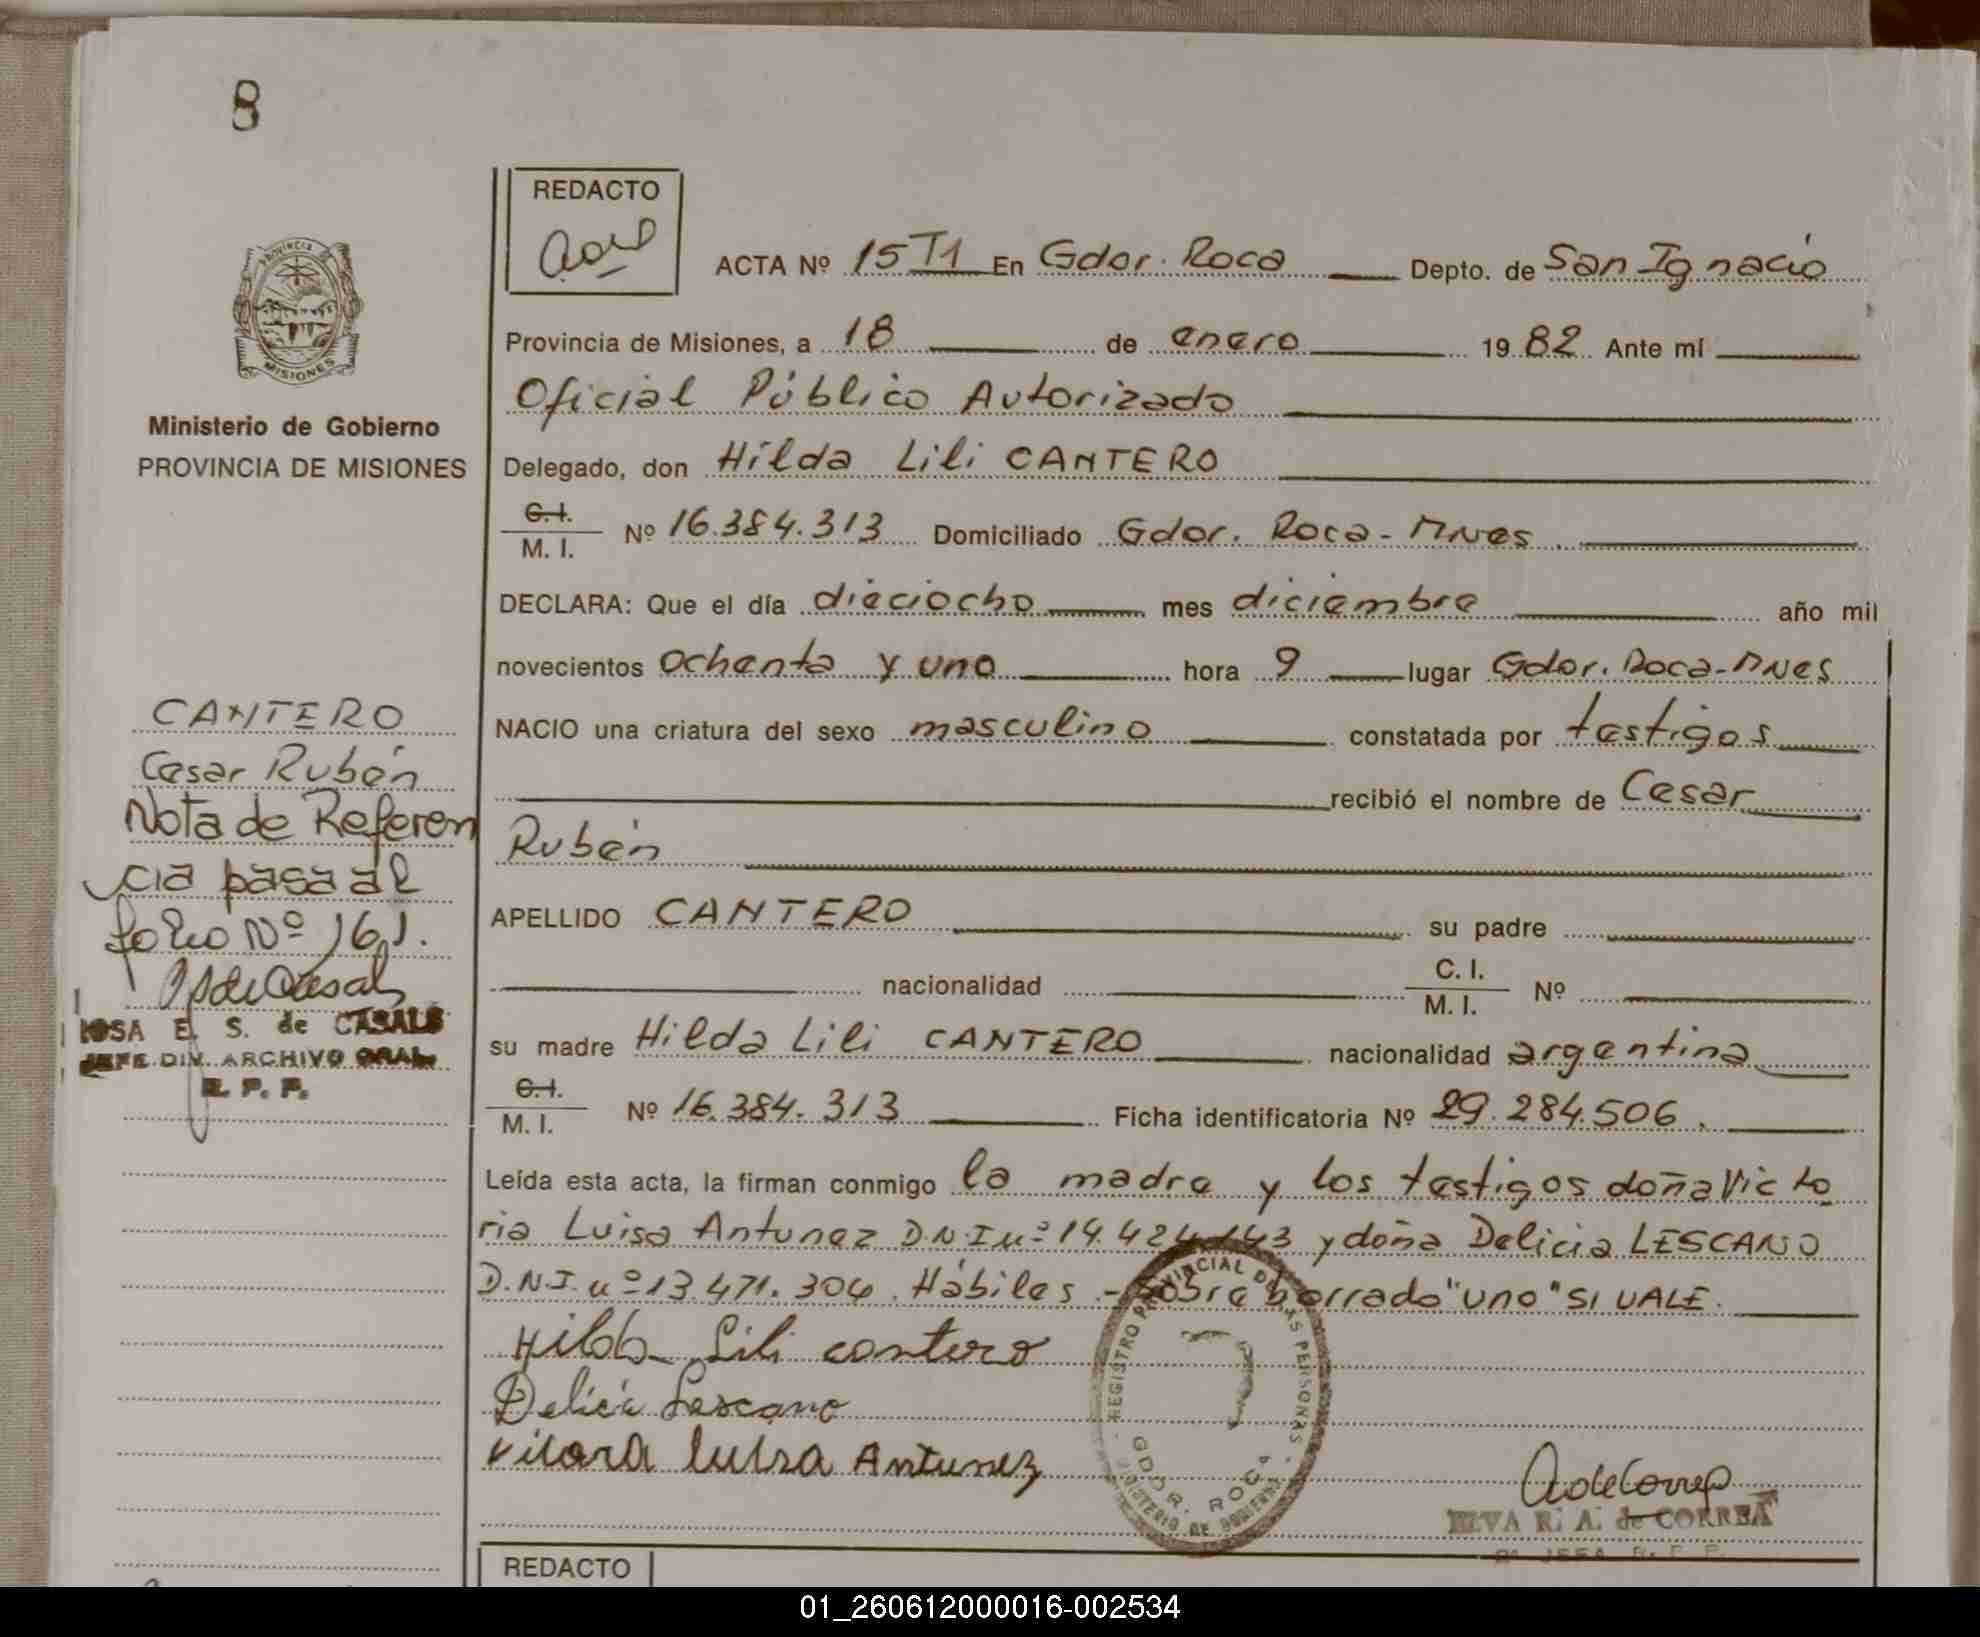 8
REDACTO
ACTA Nº 15 T1 En Gdor. Roca Depto. de San Ignacio
Provincia de Misiones, a 18 de enero 1982 Ante mí
Oficial Público Autorizado
Delegado, don Hilda Lili CANTERO
C.I.
M. I. Nº 16.384.313 Domiciliado Gdor. Roca - Mnes.
DECLARA: Que el día dieciocho mes diciembre año mil
novecientos ochenta y uno hora 9 lugar Gdor. Roca - Mnes
NACIO una criatura del sexo masculino constatada por testigos
recibió el nombre de Cesar
Rubén
APELLIDO CANTERO su padre
nacionalidad C. I.
M. I. Nº
su madre Hilda Lili CANTERO nacionalidad argentina
C.I.
M. I. Nº 16.384.313 Ficha identificatoria Nº 29.284.506.
Leída esta acta, la firman conmigo la madre y los testigos doña Victo
ria Luisa Antunez D.N.I nº 14.424.143 y doña Delicia LESCANO
D.N.I. nº 13.471.304. Hábiles. - Sobre borrado "uno" SI VALE.
Hilda Lili cantero
Delicia Lescano
Luisa Antunez
ELVA R. A. de CORREA
REDACTO
PROVINCIA DE
MISIONES
Ministerio de Gobierno
PROVINCIA DE MISIONES
CANTERO
Cesar Rubén
Nota de Referen
cia pasa al
folio Nº 161.
ROSA E. S. de CASALS
JEFE DIV. ARCHIVO GRAL.
R. P. P.
REGISTRO PROVINCIAL DE LAS PERSONAS
GDOR. ROCA
MINISTERIO DE GOBIERNO
01_260612000016-002534